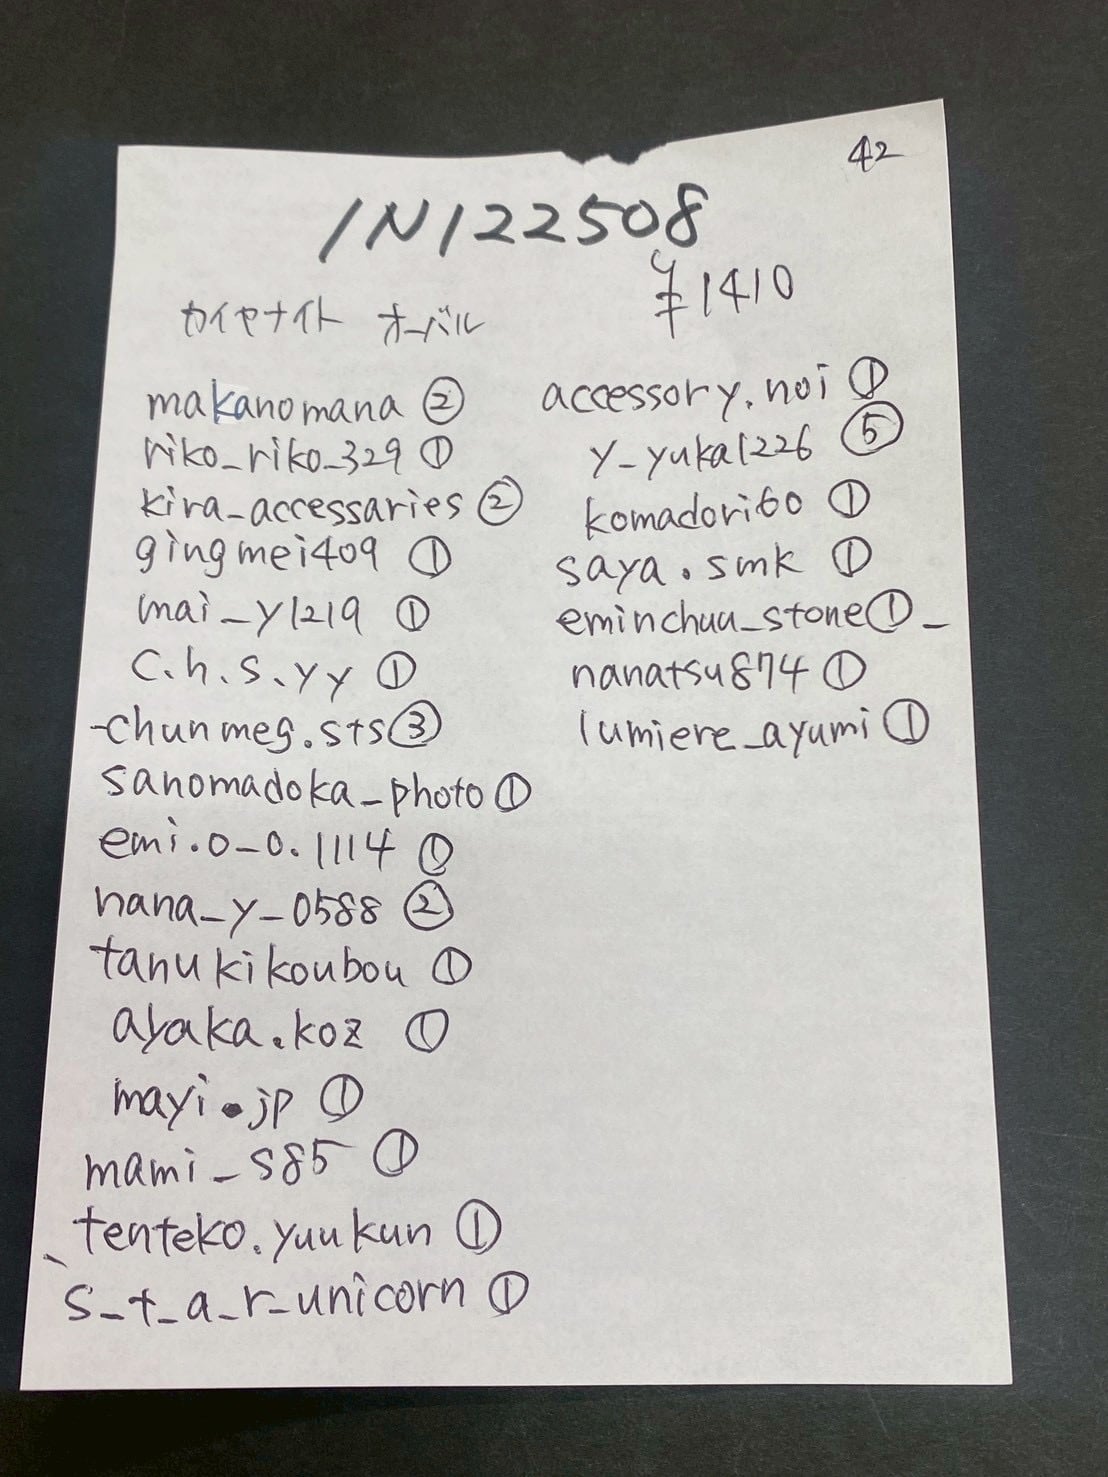 42
IN122508
¥1410
カイヤナイト オーバル
makanomana ②
riko_riko_329 ①
kira_accessaries ②
gingmei409 ①
mai_y1219 ①
c.h.s.yy ①
-chunmeg.sts ③
sanomadoka_photo ①
emi.o_o.1114 ①
nana_y_0588 ②
tanukikoubou ①
ayaka.koz ①
mayi.jp ①
mami_s85 ①
tenteko.yuukun ①
s_t_a_r_unicorn ①
accessory.noi ①
y_yuka1226 ⑤
komadori60 ①
saya.smk ①
eminchuu_stone ① _
nanatsu874 ①
lumiere_ayumi ①